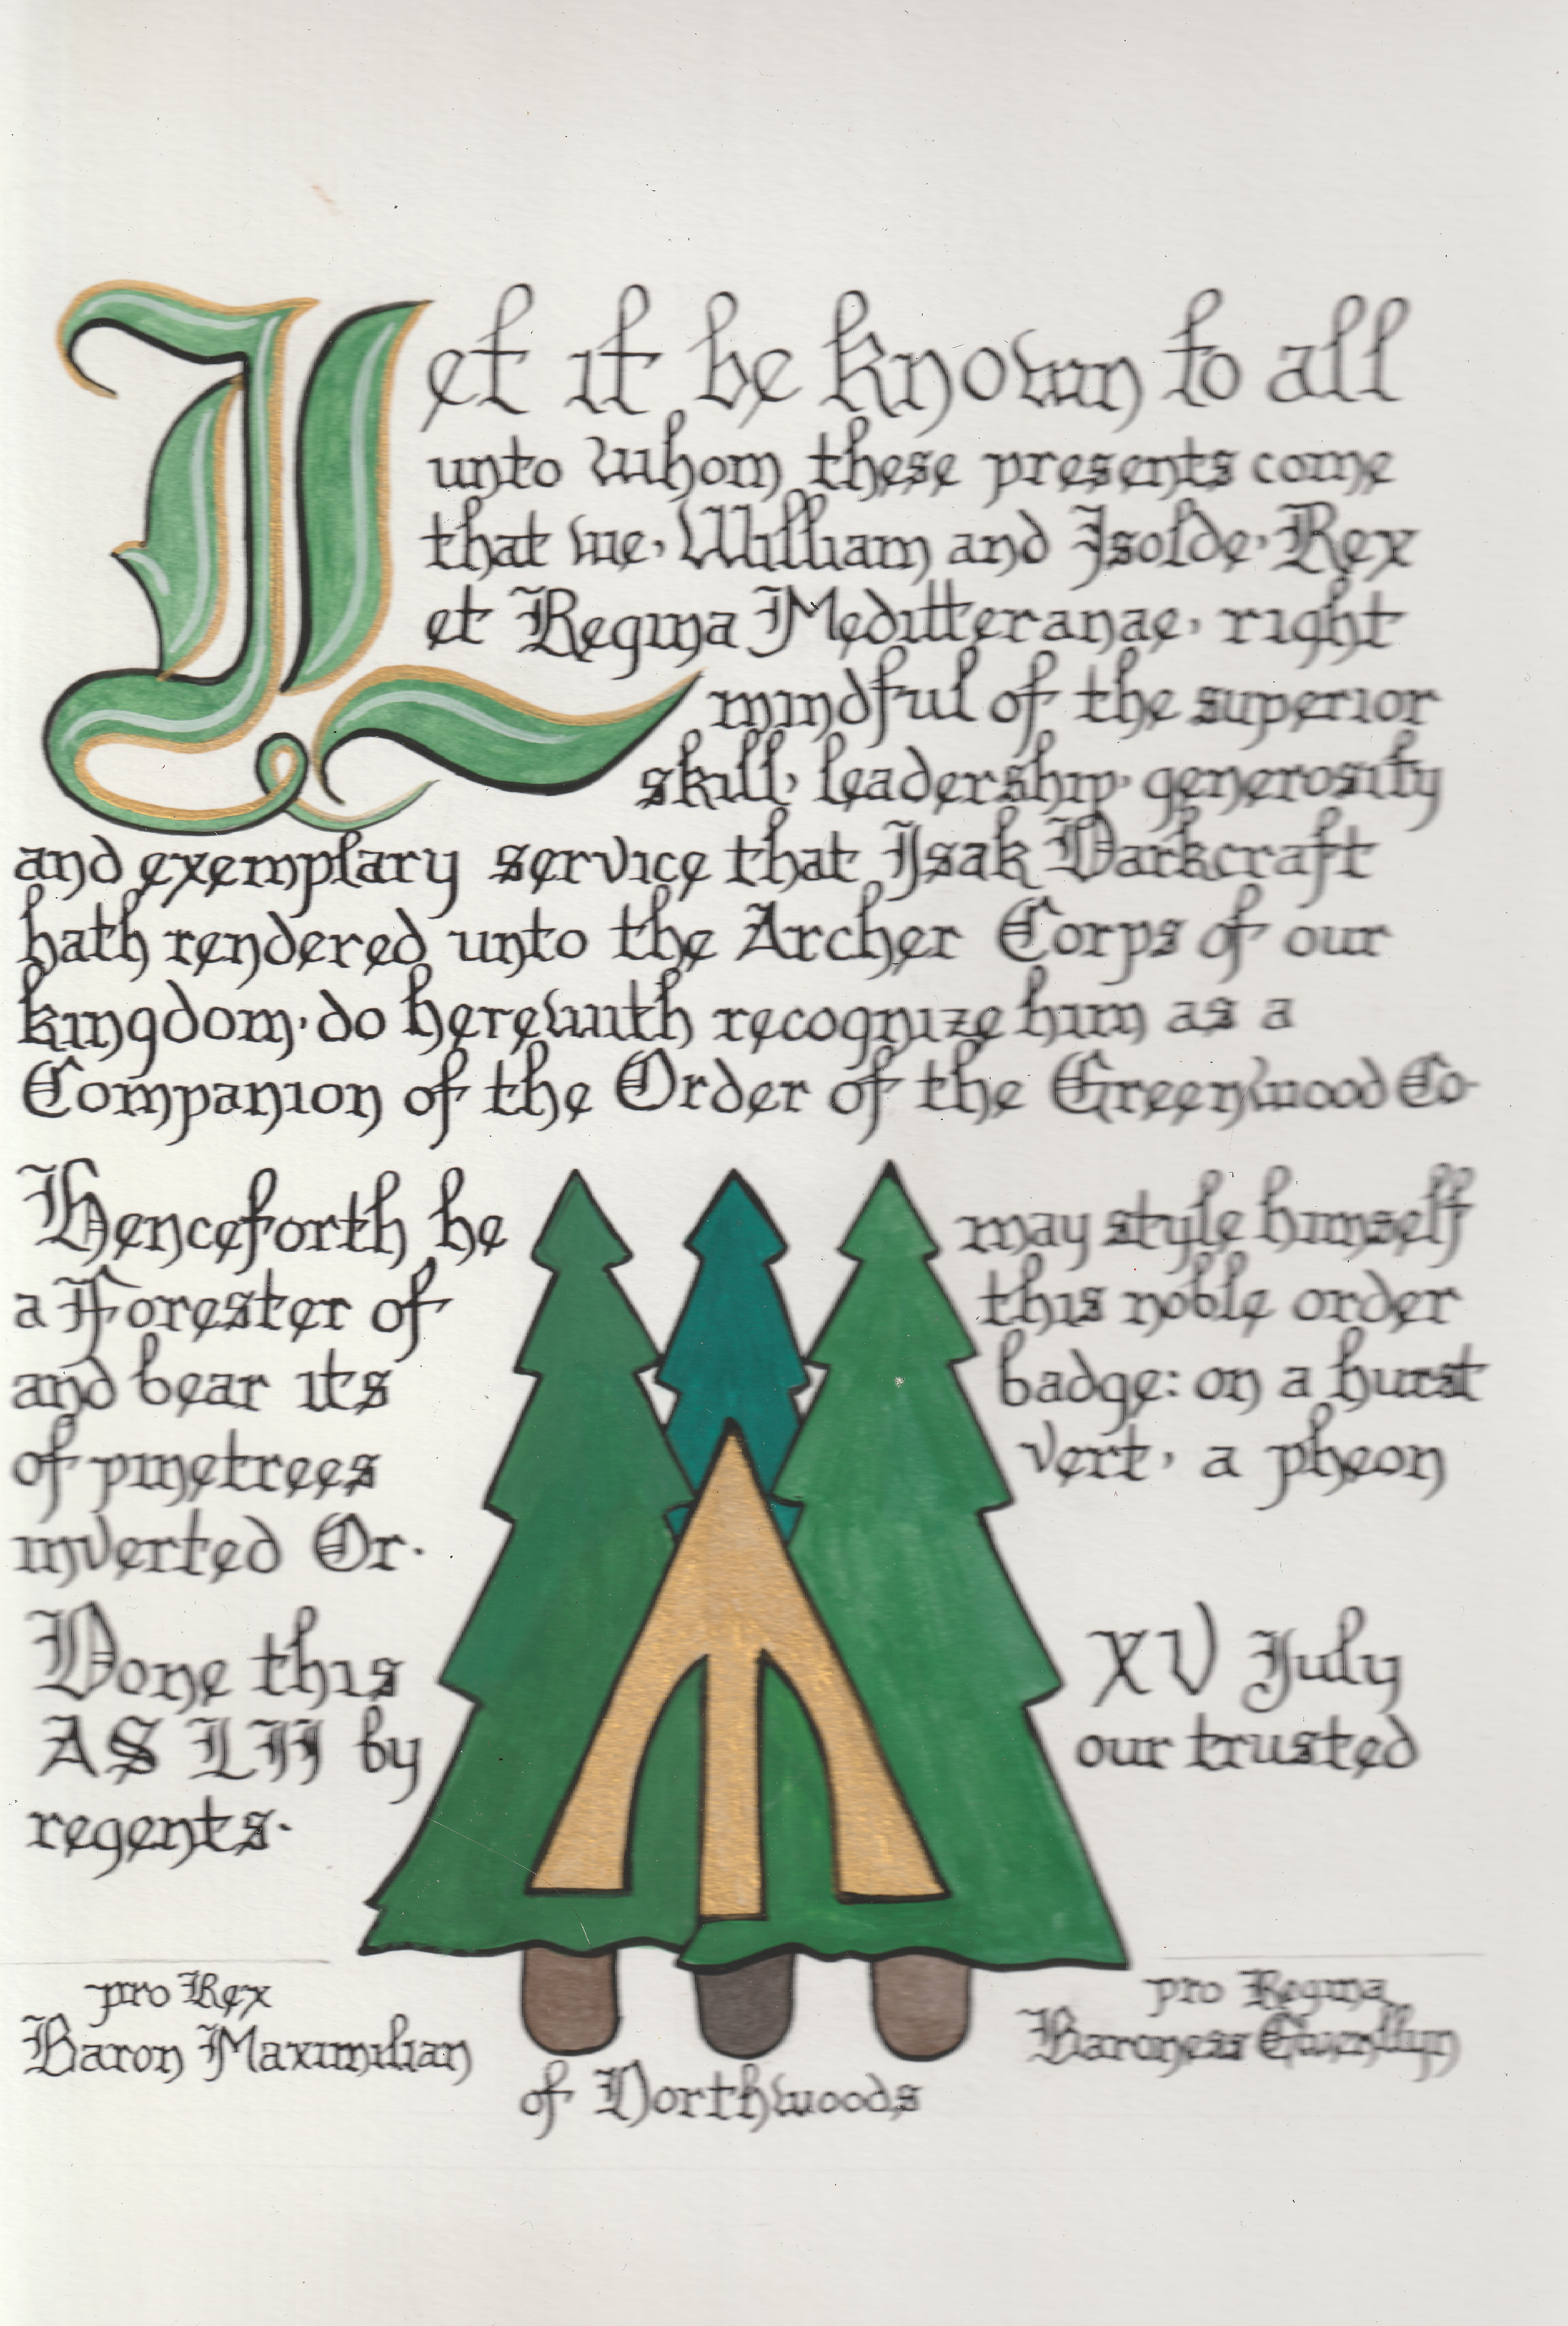 Let it be known to all
unto whom these presents come
that we, William and Isolde, Rex
et Regina Meditteranae, right
mindful of the superior
skill, leadership, generosity
and exemplary service that Isak Darkcraft
hath rendered unto the Archer Corps of our
kingdom, do herewith recognize him as a
Companion of the Order of the Greenwood Co.
Henceforth he may style himself
a Forester of this noble order
and bear its badge: on a hurst
of pinetrees vert, a pheon
inverted Or.
Done this XV July
AS LII by our trusted
regents.
pro Rex pro Regina
Baron Maximilian Baroness Gwenllyn
of Northwoods